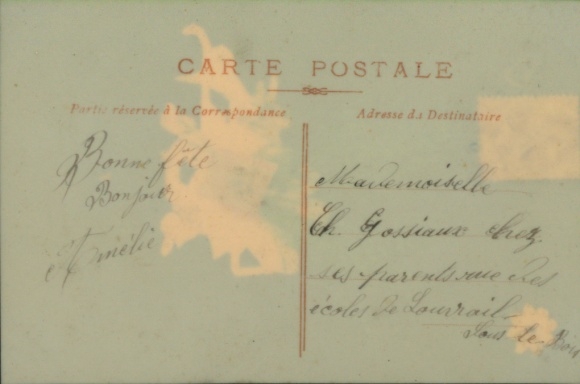 CARTE POSTALE
Partie réservée à la Correspondance
Adresse du Destinataire
Bonne fête
Bonjour
Amélie
Mademoiselle
Ch. Gossiaux chez
ses parents rue des
écoles de Louvroil
Sous le Bois